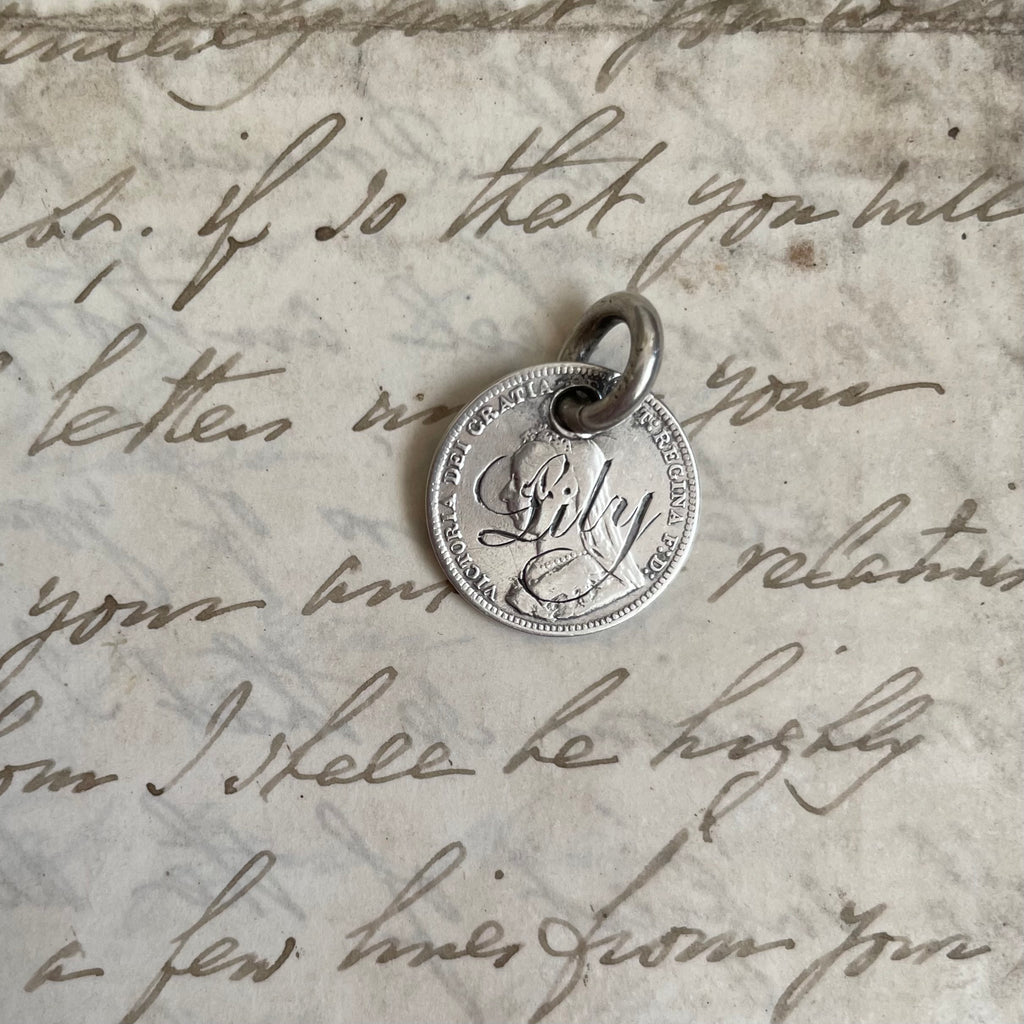 st. if so that you will
letters in your
VICTORIA DEI GRATIA
T: REGINA F: D:
Lily
your and relations
I shall be highly
a few lines from your